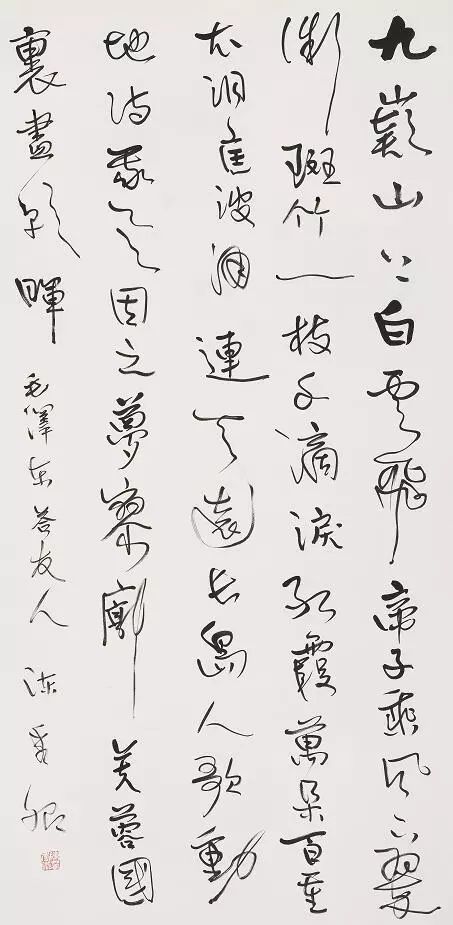 九嶷山上白雲飛帝子乘風下翠
微斑竹一枝千滴淚紅霞萬朵百重
衣洞庭波涌連天遠長島人歌動
地詩我欲因之夢寥廓芙蓉國
裏盡朝暉 毛澤東答友人